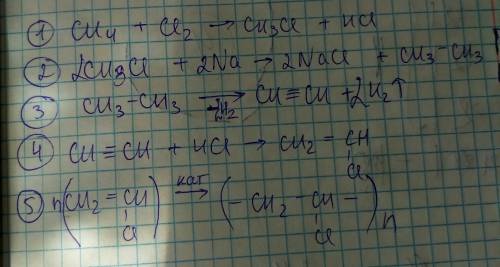 ① CH4 + Cl2 → CH3Cl + HCl
② 2CH3Cl + 2Na → 2NaCl + CH3-CH3
③ CH3-CH3 → CH≡CH + 2H2↑
-2H2
④ CH≡CH + HCl → CH2=CH
Cl
⑤ n(CH2=CH) кат → (-CH2-CH-)n
Cl Cl